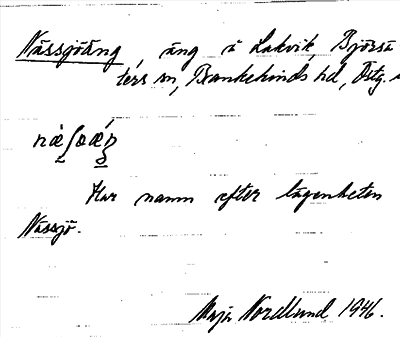 Nässjöäng, äng å Lakvik, Björsä
ters sn, Bankekinds hd, Östg.
Har namn efter lägenheten
Nässjö.
Maja Nordlund 1946.